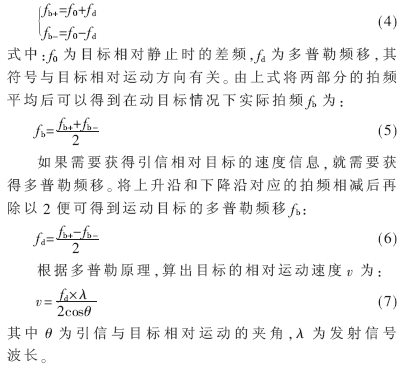 {fb+=f0+fd
{fb-=f0-fd (4)
式中:f0 为目标相对静止时的差频,fd 为多普勒频移,其
符号与目标相对运动方向有关。由上式将两部分的拍频
平均后可以得到在动目标情况下实际拍频 fb 为:
fb=(fb++fb-)/2 (5)
如果需要获得引信相对目标的速度信息,就需要获
得多普勒频移。将上升沿和下降沿对应的拍频相减后再
除以 2 便可得到运动目标的多普勒频移 fb:
fd=(fb+-fb-)/2 (6)
根据多普勒原理,算出目标的相对运动速度 v 为:
v=(fd×λ)/(2cosθ) (7)
其中 θ 为引信与目标相对运动的夹角,λ 为发射信号
波长。